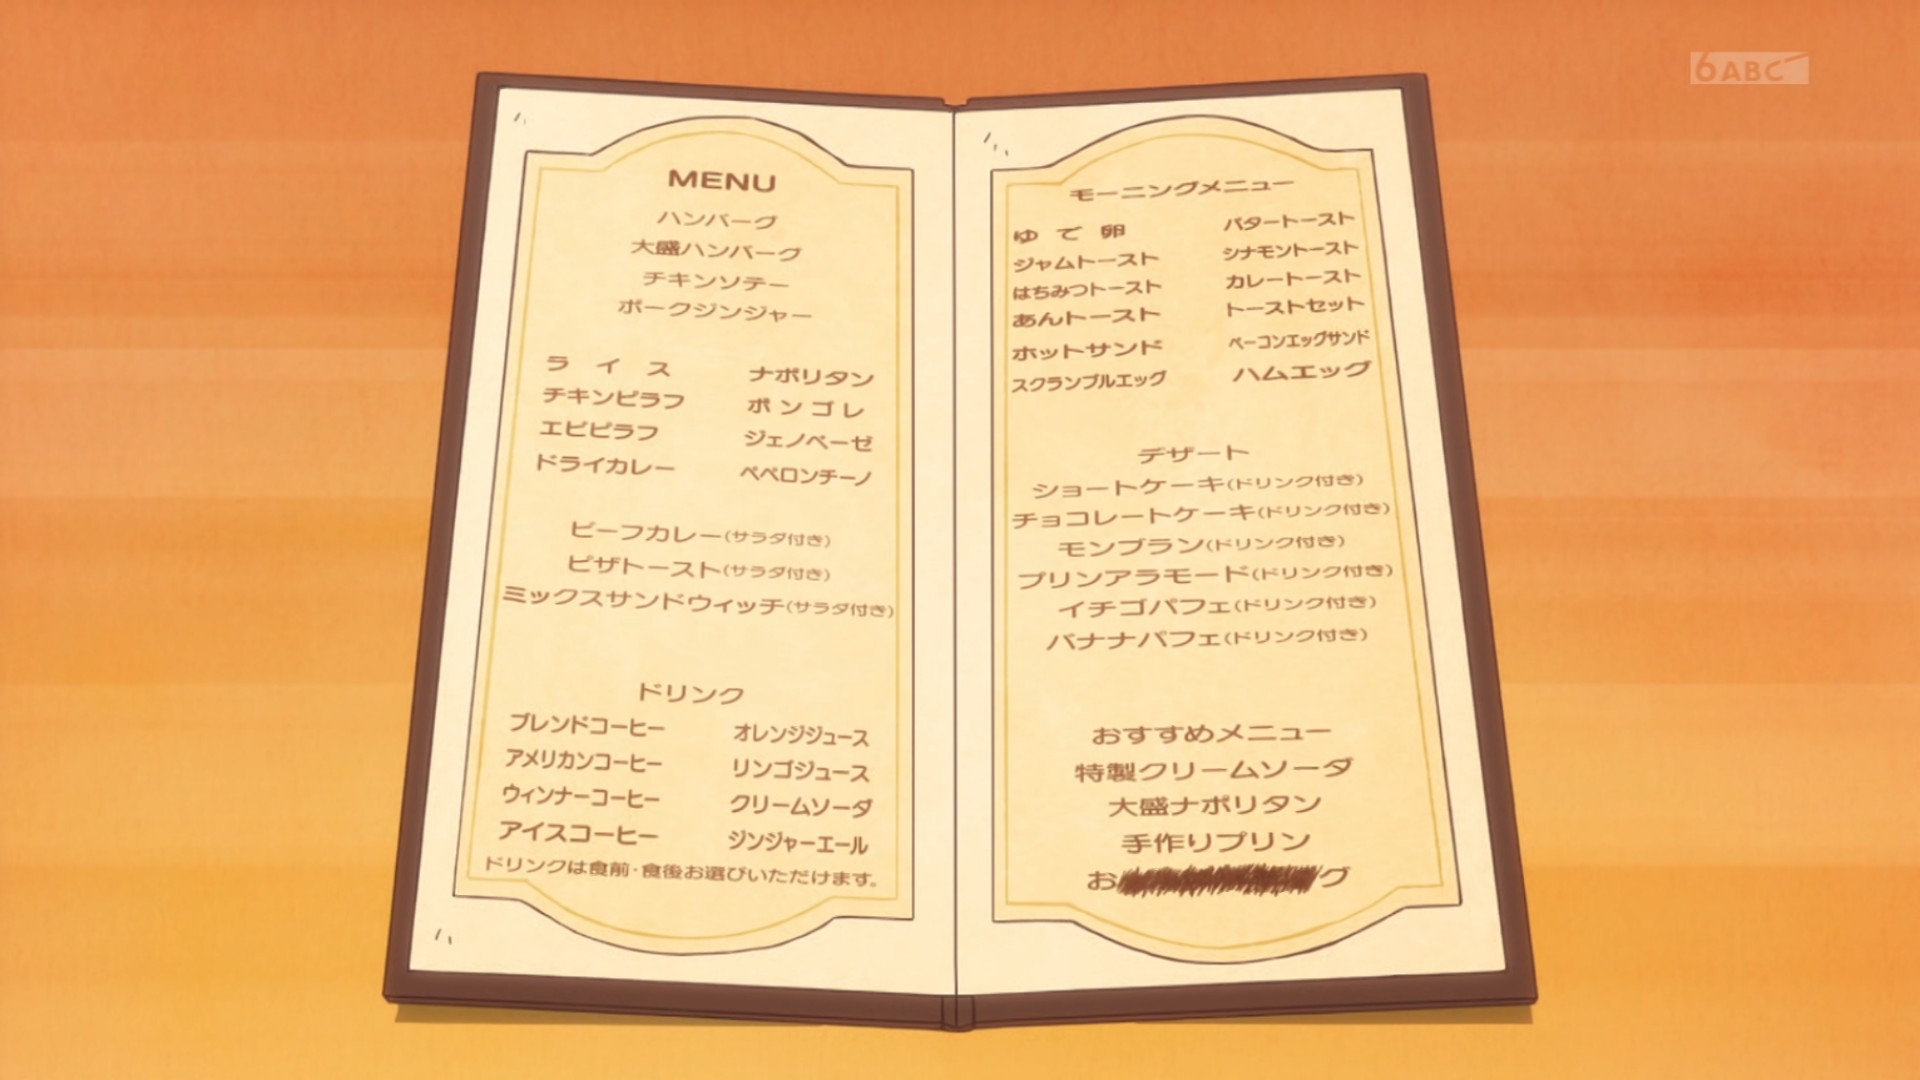 6ABC
MENU
ハンバーグ
大盛ハンバーグ
チキンソテー
ポークジンジャー
ライス
チキンピラフ
エビピラフ
ドライカレー
ナポリタン
ボンゴレ
ジェノベーゼ
ペペロンチーノ
ビーフカレー(サラダ付き)
ピザトースト(サラダ付き)
ミックスサンドウィッチ(サラダ付き)
ドリンク
ブレンドコーヒー
アメリカンコーヒー
ウィンナーコーヒー
アイスコーヒー
オレンジジュース
リンゴジュース
クリームソーダ
ジンジャーエール
ドリンクは食前・食後お選びいただけます。
モーニングメニュー
ゆで卵
ジャムトースト
はちみつトースト
あんトースト
ホットサンド
スクランブルエッグ
バタートースト
シナモントースト
カレートースト
トーストセット
ベーコンエッグサンド
ハムエッグ
デザート
ショートケーキ(ドリンク付き)
チョコレートケーキ(ドリンク付き)
モンブラン(ドリンク付き)
プリンアラモード(ドリンク付き)
イチゴパフェ(ドリンク付き)
バナナパフェ(ドリンク付き)
おすすめメニュー
特製クリームソーダ
大盛ナポリタン
手作りプリン
お グ